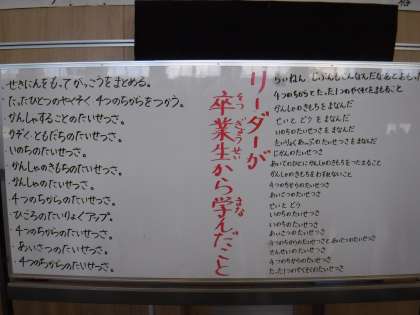 リーダーが
卒業生から学んだこと
そつぎょうせい
まな
・せきにんをもってがっこうをまとめる。
・たったひとつのやくそく 4つのちからをつかう。
・かんしゃすることのたいせつさ。
・かぞく・ともだちのたいせつさ。
・いのちのたいせつさ。
・かんしゃのきもちのたいせつさ。
・かんしゃのたいせつさ。
・4つのちからのたいせつさ。
・ひごろのたいりょくアップ。
・4つのちからのたいせつさ。
・あいさつのたいせつさ。
・4つのちからのたいせつさ。
らいねん じぶんもこんなんだなあとおもった
4つのちからと たった1つのやくそくをまもること
かんしゃのきもちをまなんだ
せいと どうをまなんだ
いのちのたいせつさをまなんだ
たいりょくあっぷのたいせつさをまなんだ
じかんのたいせつさ
あいてのひとにかんしゃのきもちをつたえること
かんしゃのきもちをわすれないこと
4つのちからのたいせつさ
あいさつのたいせつさ
せいと どう
いのちのたいせつさ
いのちのたいせつさ
あいさつのたいせつさ
4つのちからのたいせつさと あいさつのたいせつさ
せんせいのたいせつさ
4つのちからのたいせつさ
たった1つのやくそくのたいせつさ